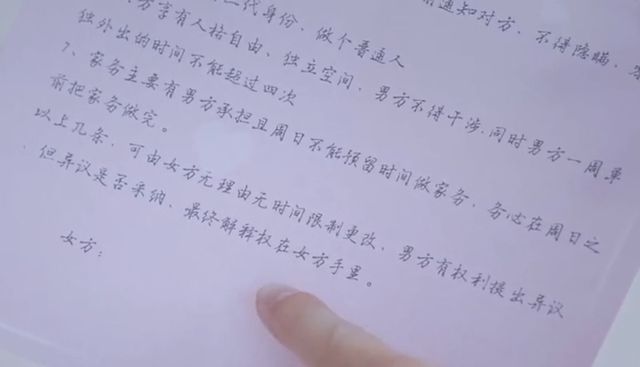 通知对方、不得隐瞒、
一代身份、做个普通人
方享有人格自由、独立空间、男方不得干涉.同时男方一周单
独外出的时间不能超过四次
7、家务主要有男方承担且周日不能预留时间做家务、务必在周日之
前把家务做完。
以上几条、可由女方无理由无时间限制更改、男方有权利提出异议
、但异议是否采纳、最终解释权在女方手里。
女方: